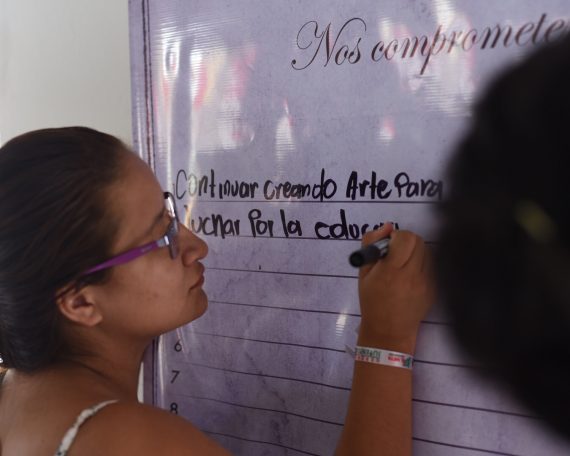 Nos compromete
Continuar creando Arte Para
luchar Por la educa
6
7
8